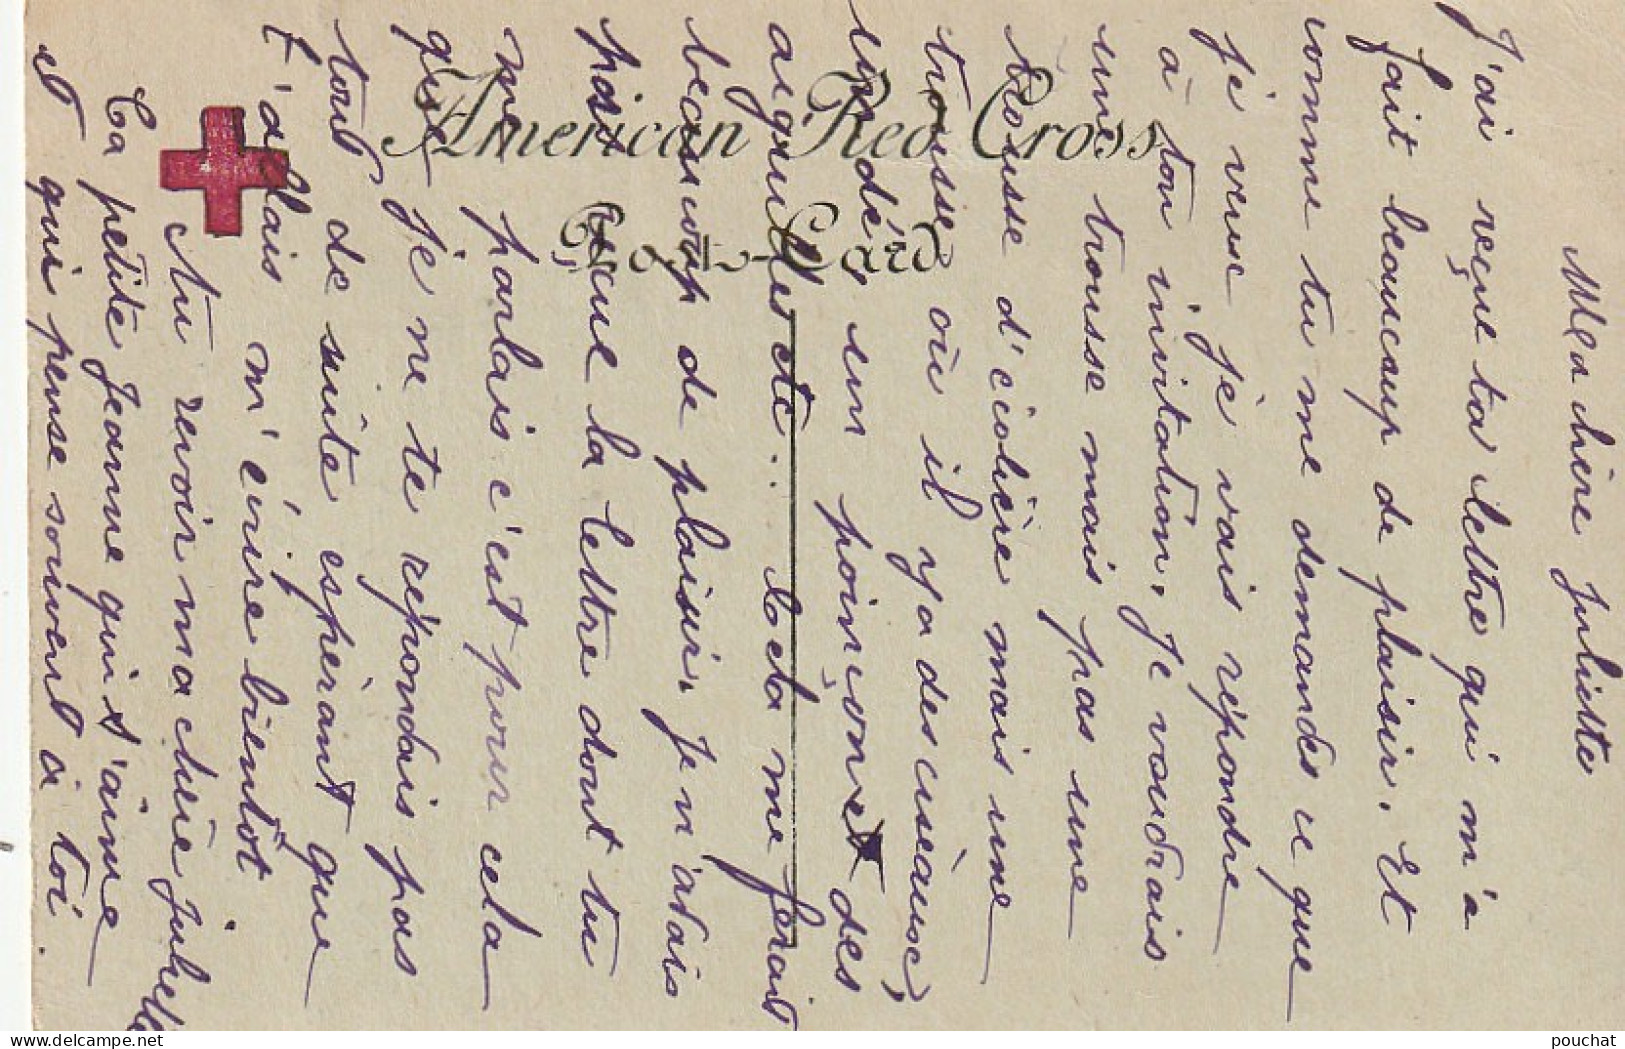 Ma chère Juliette
J'ai reçue ta lettre qui m'a
fait beaucoup de plaisir. Et
comme tu me demandes ce que
je veux je vais répondre
à ton invitation. Je voudrais
une trousse mais pas une
trousse d'écolière mais une
trousse où il y a des ciseaux,
un dé, un poinçon et des
aiguilles etc. Cela me ferait
beaucoup de plaisir. Je n'avais
pas reçue la lettre dont tu
me parlais c'est pour cela
que je ne te répondais pas
tout de suite espérant que
t'allais m'écrire bientôt
Au revoir ma chère Juliette
Ta petite Jeanne qui t'aime
et qui pense souvent à toi.
American Red Cross
Post-Card
pouchat